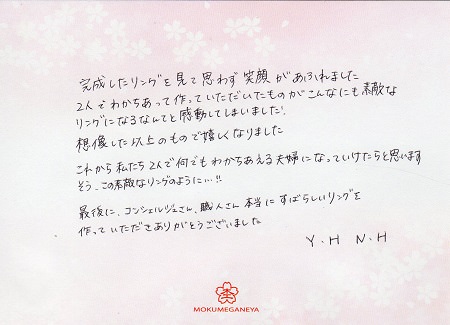 完成したリングを見て思わず笑顔があふれました
2人でわかちあって作っていただいたものがこんなにも素敵な
リングになるなんてと感動してしまいました!
想像した以上のもので嬉しくなりました
これから私たち2人で何でもわかちあえる夫婦になっていけたらと思います
そう、この素敵なリングのように…!!
最後に、コンシェルジュさん、職人さん本当にすばらしいリングを
作っていただきありがとうございました
Y.H N.H
MOKUMEGANEYA